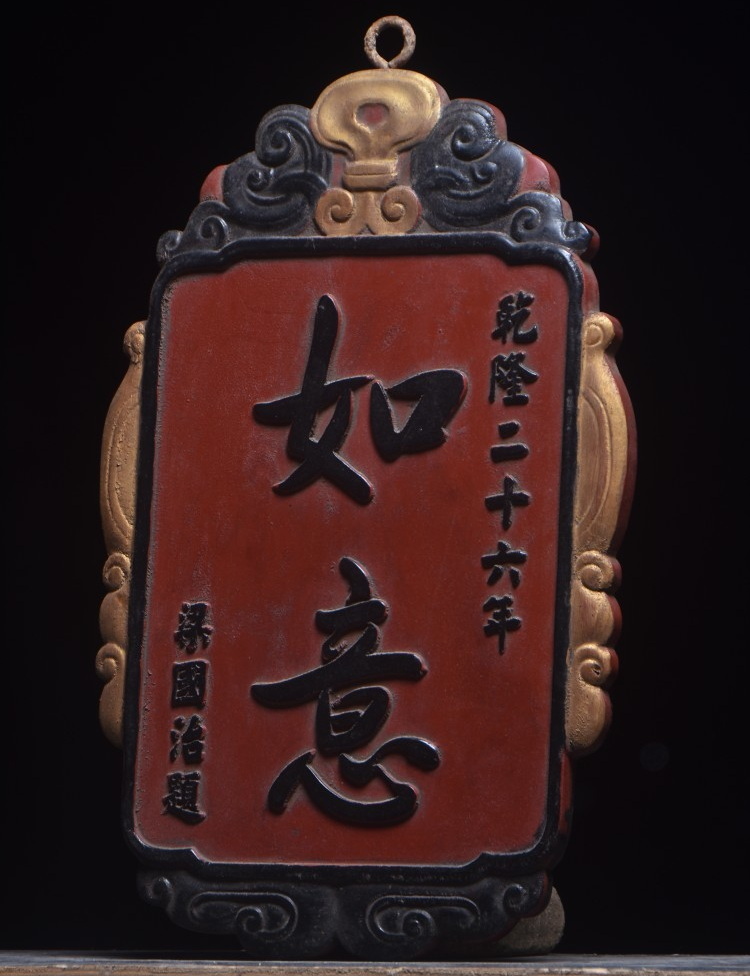 乾隆二十六年
如意
梁國治題